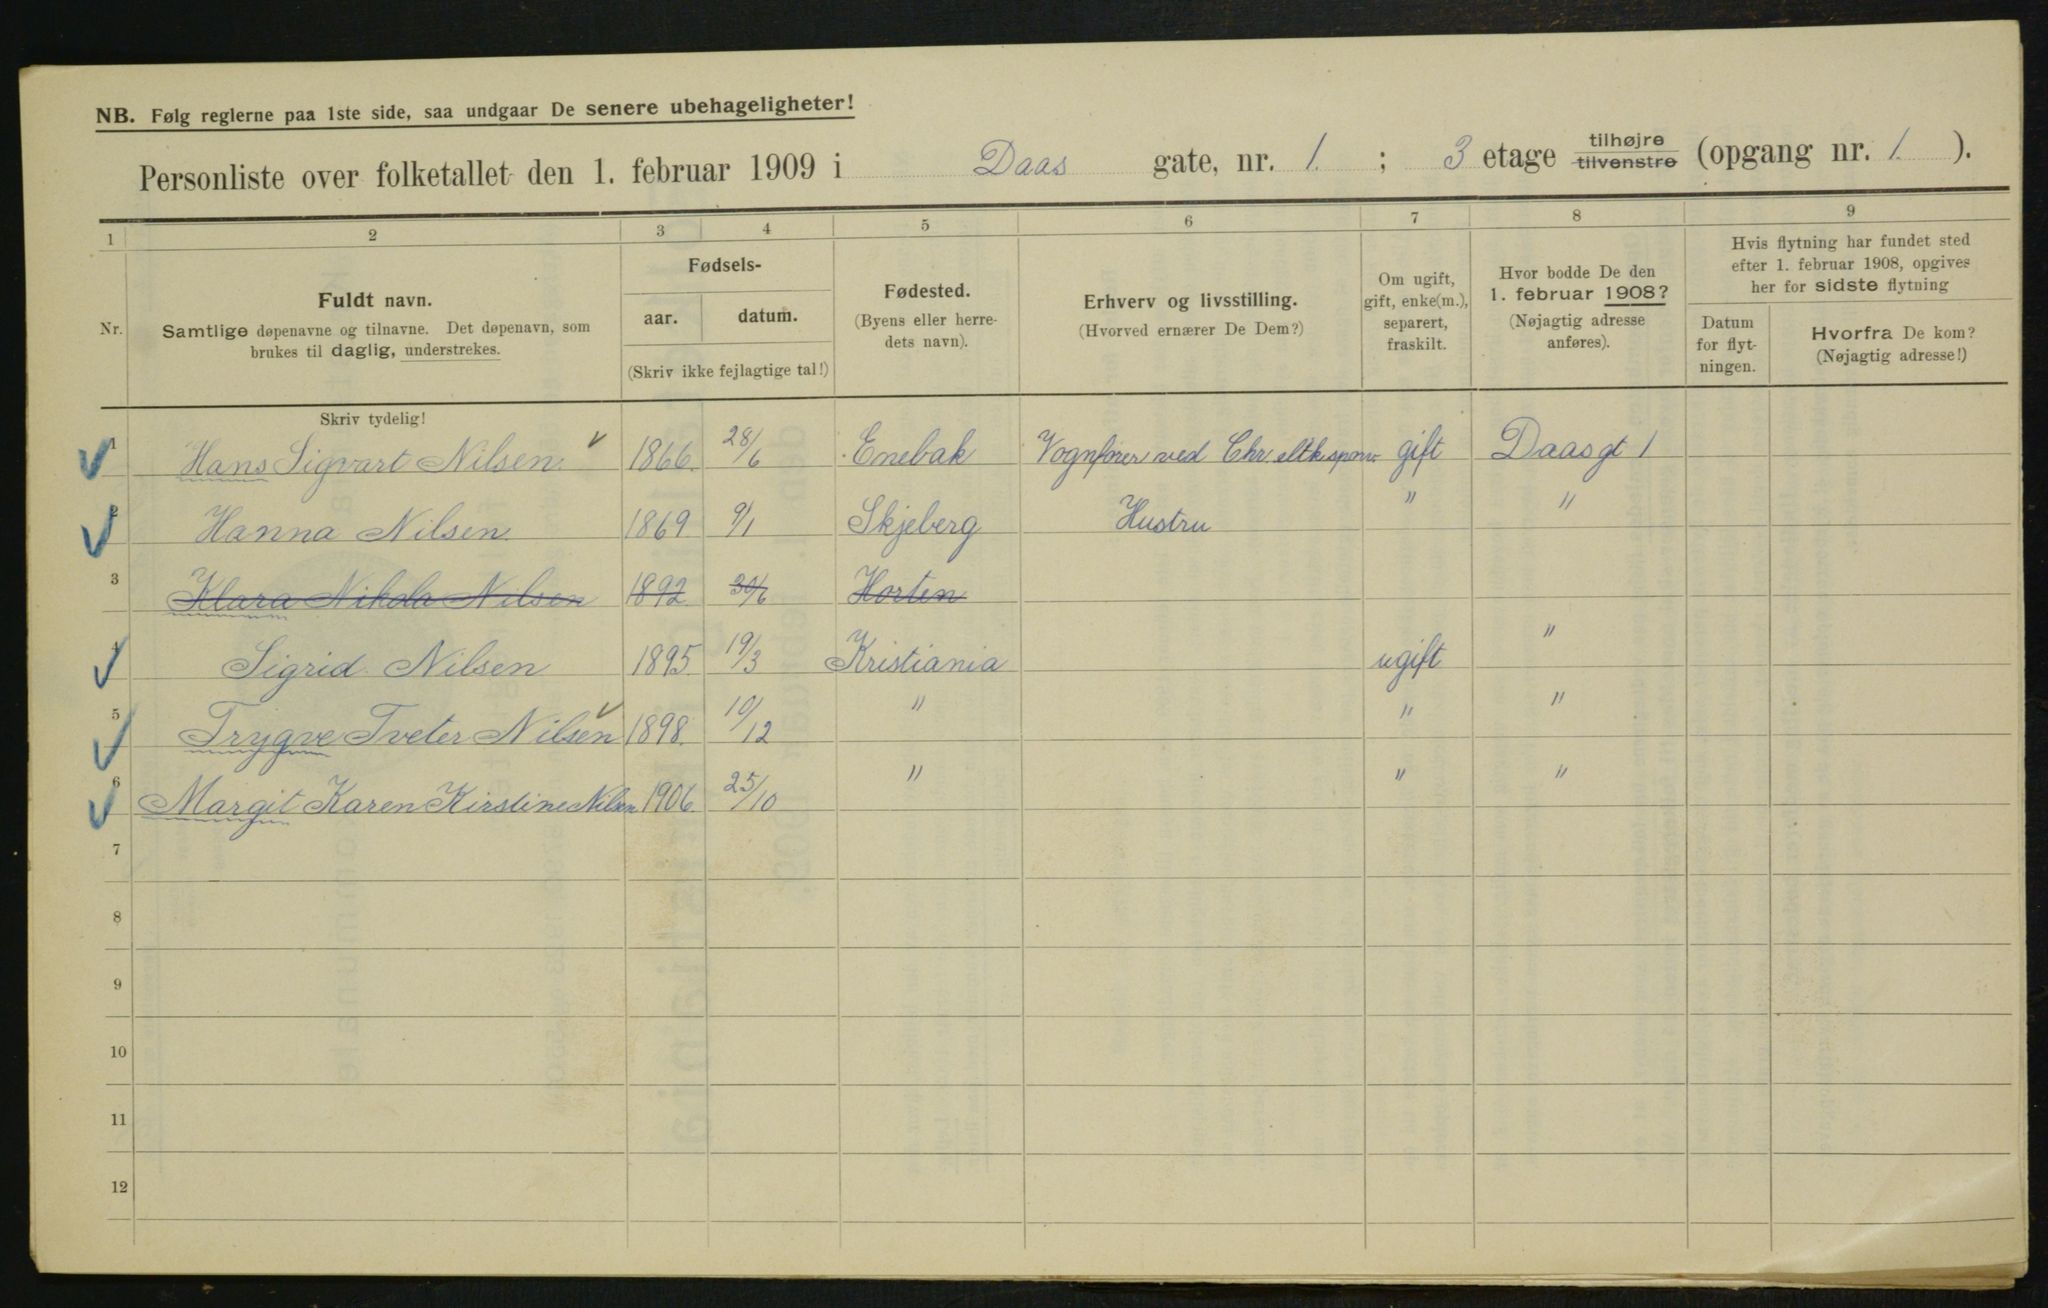 NB. Følg reglerne paa 1ste side, saa undgaar De senere ubehageligheter!
Personliste over folketallet den 1. februar 1909 i Daas gate, nr. 1. ; 3 etage tilhøjre tilvenstre (opgang nr. 1. ).
1 2 3 4 5 6 7 8 9
Nr.
Fuldt navn.
Samtlige døpenavne og tilnavne. Det døpenavn, som
brukes til daglig, understrekes.
Fødsels-
aar. datum.
(Skriv ikke fejlagtige tal!)
Fødested.
(Byens eller herre-
dets navn).
Erhverv og livsstilling.
(Hvorved ernærer De Dem?)
Om ugift,
gift, enke(m.),
separert,
fraskilt.
Hvor bodde De den
1. februar 1908?
(Nøjagtig adresse
anføres).
Hvis flytning har fundet sted
efter 1. februar 1908, opgives
her for sidste flytning
Datum
for flyt-
ningen.
Hvorfra De kom?
(Nøjagtig adresse!)
Skriv tydelig!
1 Hans Sigvart Nilsen. 1866. 28/6 Enebak Vognfører ved Chr. gift Daasgt 1
2 Hanna Nilsen. 1869 9/1 Skjeberg Hustru " "
3 Klara Nikola Nilsen 1892 30/6 Horten
4 Sigrid Nilsen 1895. 19/3 Kristiania ugift "
5 Trygve Tveter Nilsen 1898. 10/12 " " "
6 Margit Karen Kirstine Nilsen 1906. 25/10 " " "
7
8
9
10
11
12